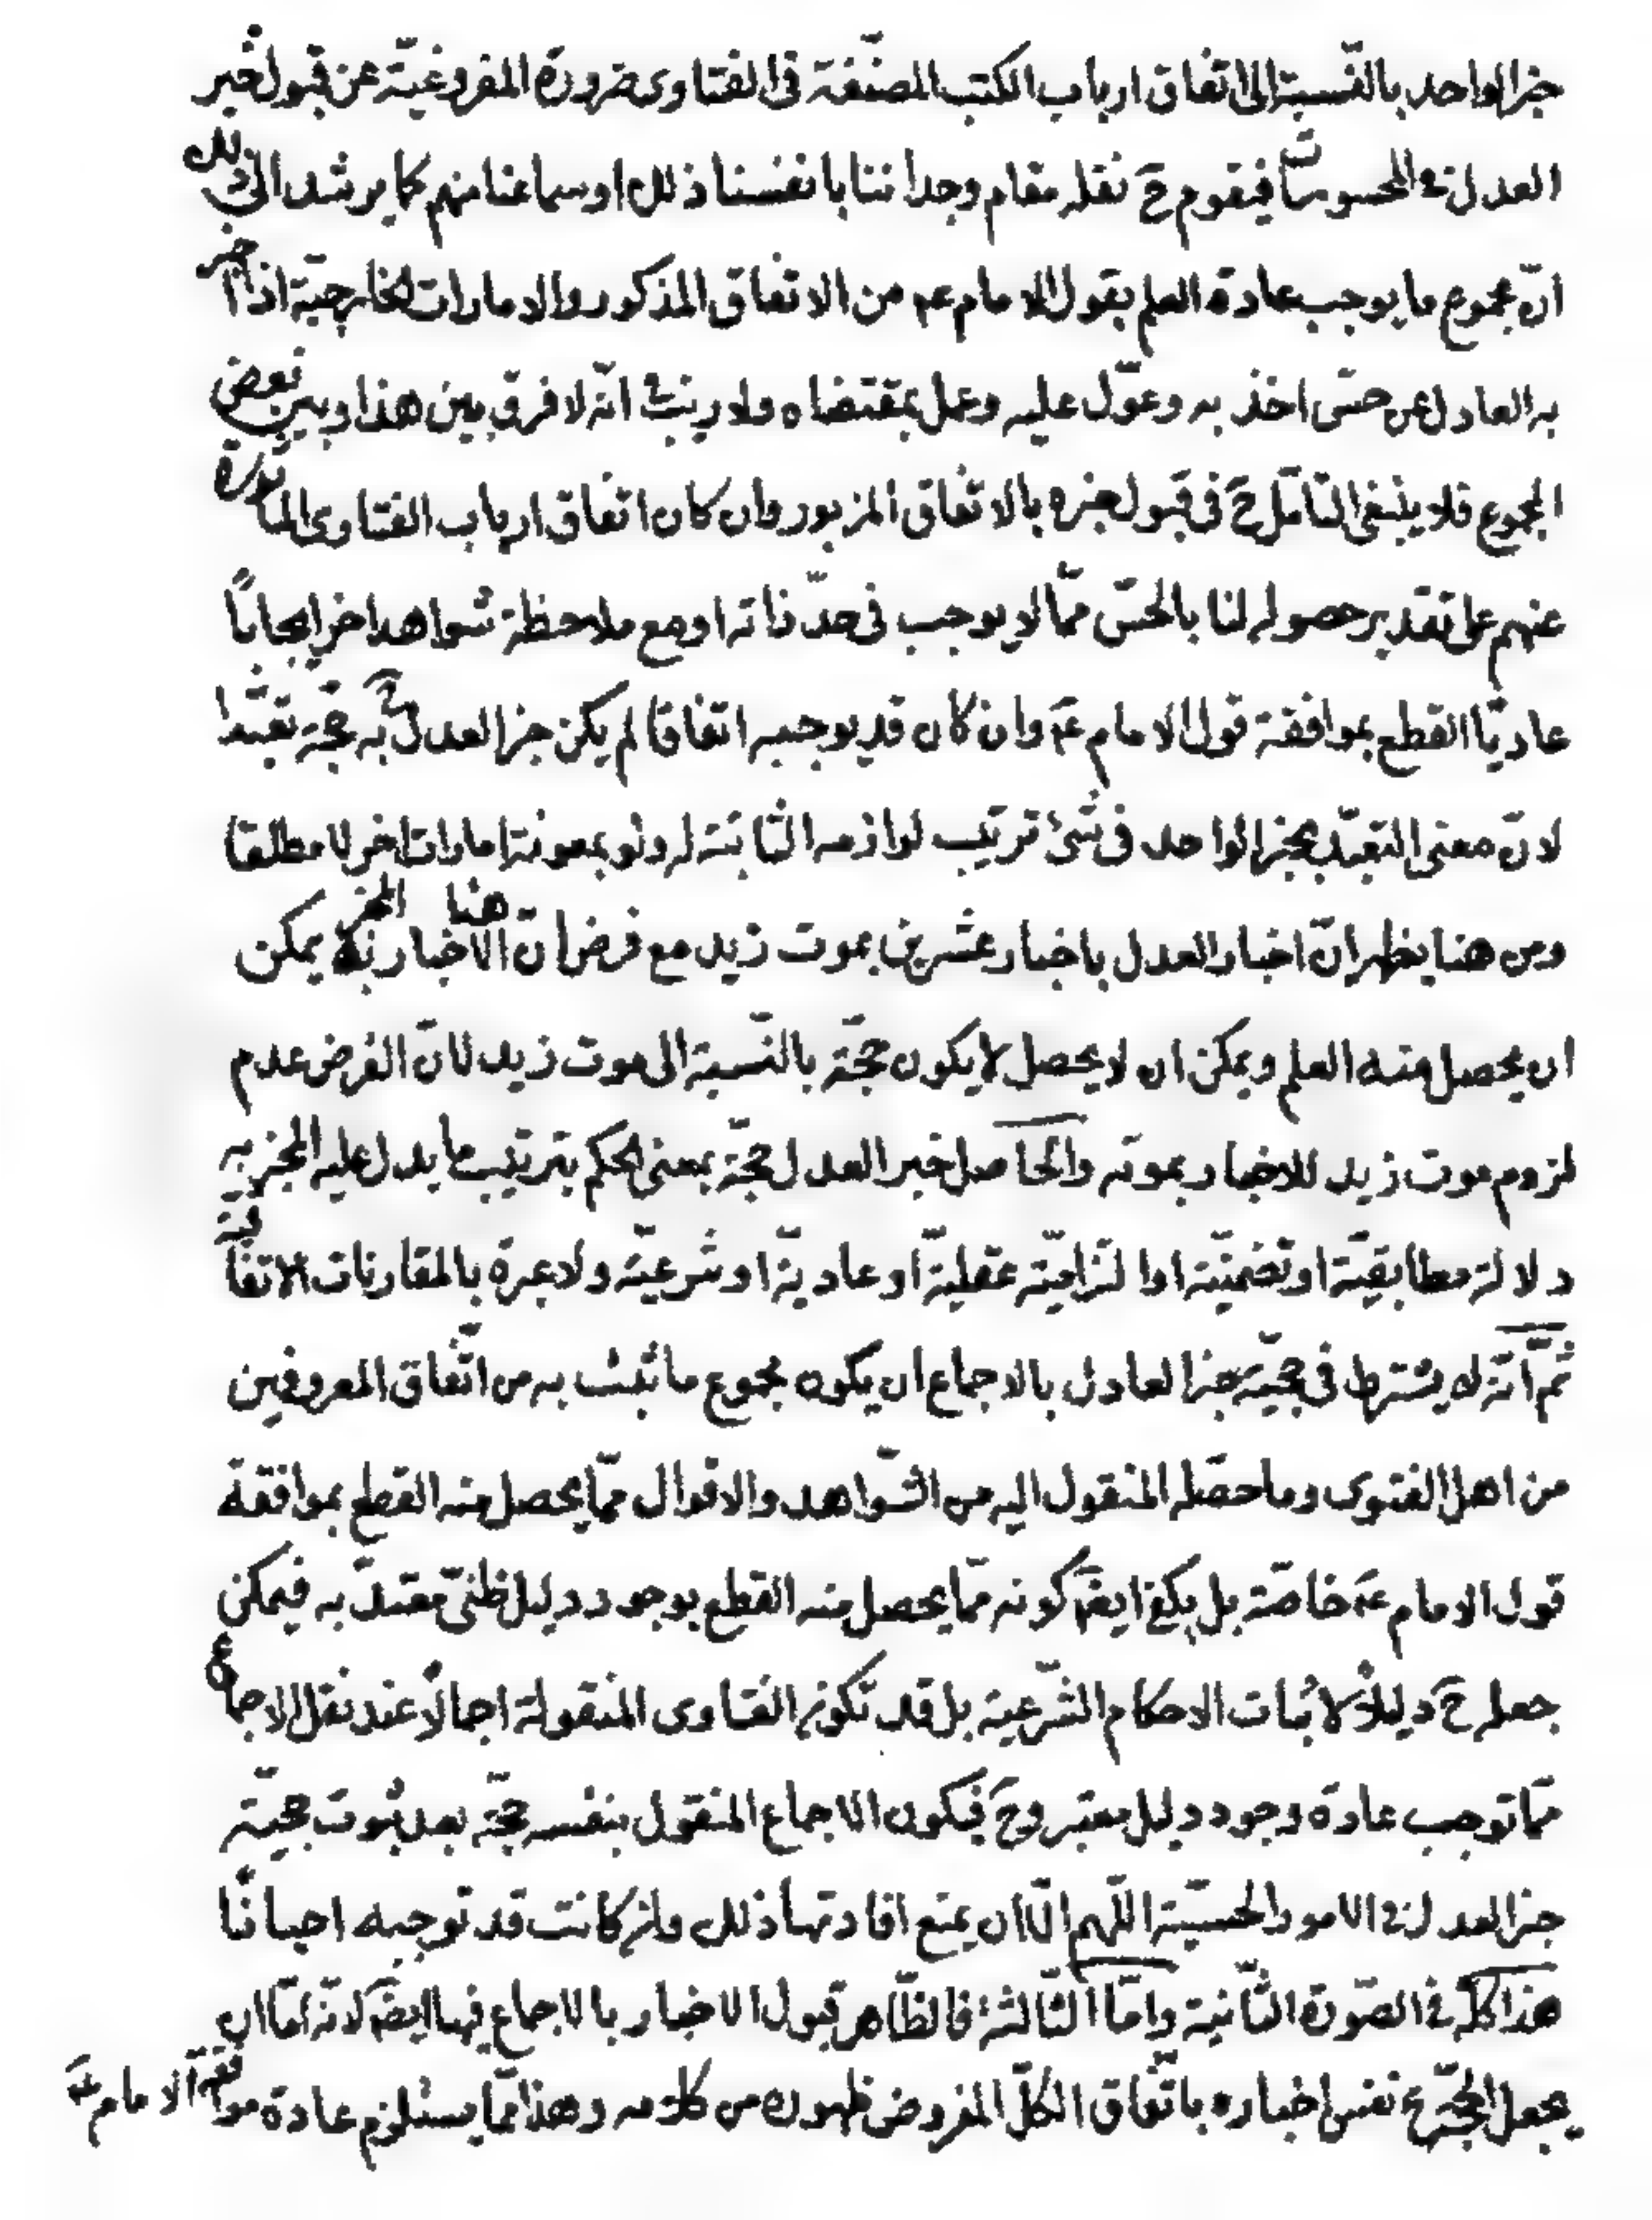 خبر الواحد بالنّسبة الى اتفاق ارباب الكتب المصنّفة فى الفتاوى ضرورة المفروغيّة عن قبول خبر
العدل فى المحسوسات فيقوم ح نقله مقام وجداننا بانفسنا ذلك او سماعنا منهم كما يرشد الى ذلك
انّ مجموع ما يوجب عادة العلم بقول الامام عم من الاتفاق المذكور والامارات الخارجيّة اذا اخبر
به العادل عن حسّ اخذ به وعوّل عليه وعمل بمقتضاه ولا ريب فى انّه لا فرق بين هذا وبين بعض
المجموع فلا ينبغى التامّل ح فى قبول خبره بالاتفاق المزبور وان كان اتفاق ارباب الفتاوى الماثورة
عنهم على تقدير حصوله لنا بالحسّ ممّا لا يوجب فى حدّ ذاته او مع ملاحظة شواهد اخر ايجابًا
عاديّا القطع بموافقة قول الامام عم وان كان قد يوجبه اتفاقا لم يكن خبر العدل به حجّة تعبّدا
لانّ معنى التعبّد بخبر الواحد فى شئ ترتيب لوازمه الثابتة له ولو بمعونة امارات اخر لا مطلقا
ومن هنا يظهر انّ اخبار العدل باخبار عشرين بموت زيد مع فرض انّ الاخبار هنا المخبر به يمكن
ان يحصل منه العلم ويمكن ان لا يحصل لا يكون حجّة بالنّسبة الى موت زيد لانّ الفرض عدم
لزوم موت زيد للاخبار بموته والحاصل خبر العدل حجّة بمعنى الحكم بترتيب ما يدل عليه المخبر به
دلالة مطابقيّة او تضمنيّة او التزاميّة عقليّة او عادية او شرعيّة ولا عبرة بالمقارنات الاتفاقيّة
ثمّ انّه لا يشترط فى حجّيّة خبر العادل بالاجماع ان يكون مجموع ما ثبت به من اتّفاق المعروفين
من اهل الفتوى وما حصّله المنقول اليه من الشّواهد والاقوال ممّا يحصل منه القطع بموافقة
قول الامام عم خاصّة بل يكفى ايضًا كونه ممّا يحصل منه القطع بوجود دليل ظنّى معتدّ به فيمكن
جعله ح دليلاً لاثبات الاحكام الشّرعية بل قد تكون الفتاوى المنقولة اجمالاً عند نقل الاجماع
ممّا توجب عادة وجود دليل معتبر وح فيكون الاجماع المنقول بنفسه حجّة بعد ثبوت حجيّة
خبر العدل فى الامور الحسيّة اللّهم الّا ان يمنع افادتها ذلك وان كانت قد توجبه احيانًا
هذا كلّه فى الصّورة الثّانية وامّا الثّالثة فالظّاهر قبول الاخبار بالاجماع فيها ايضًا لانّه امّا ان
يجعل الحجّة نفس اخباره باتّفاق الكلّ المفروض ظهوره من كلامه وهذا ممّا يستلزم عادة موافقة الامام عم